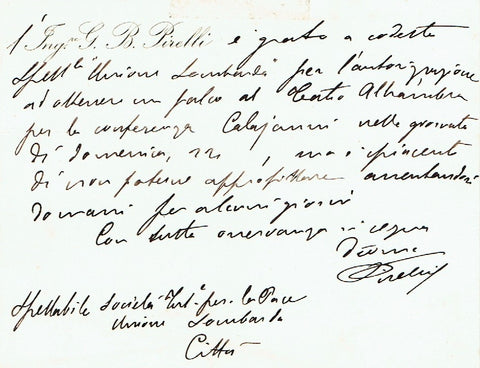 l'Ing.re G. B. Pirelli è grato a codesta
Spett.le "Unione Lombarda" per l'autorizzazione
ad ottenere un palco al Teatro Alhambra
per la conferenza Colajanni nella giornata
di domenica, ma è spiacente
di non poterne approfittare assentandosi
domani per alcuni giorni
Con tutta osservanza si segna
Pirelli
Spettabile Società Int.le per la Pace
Unione Lombarda
Città